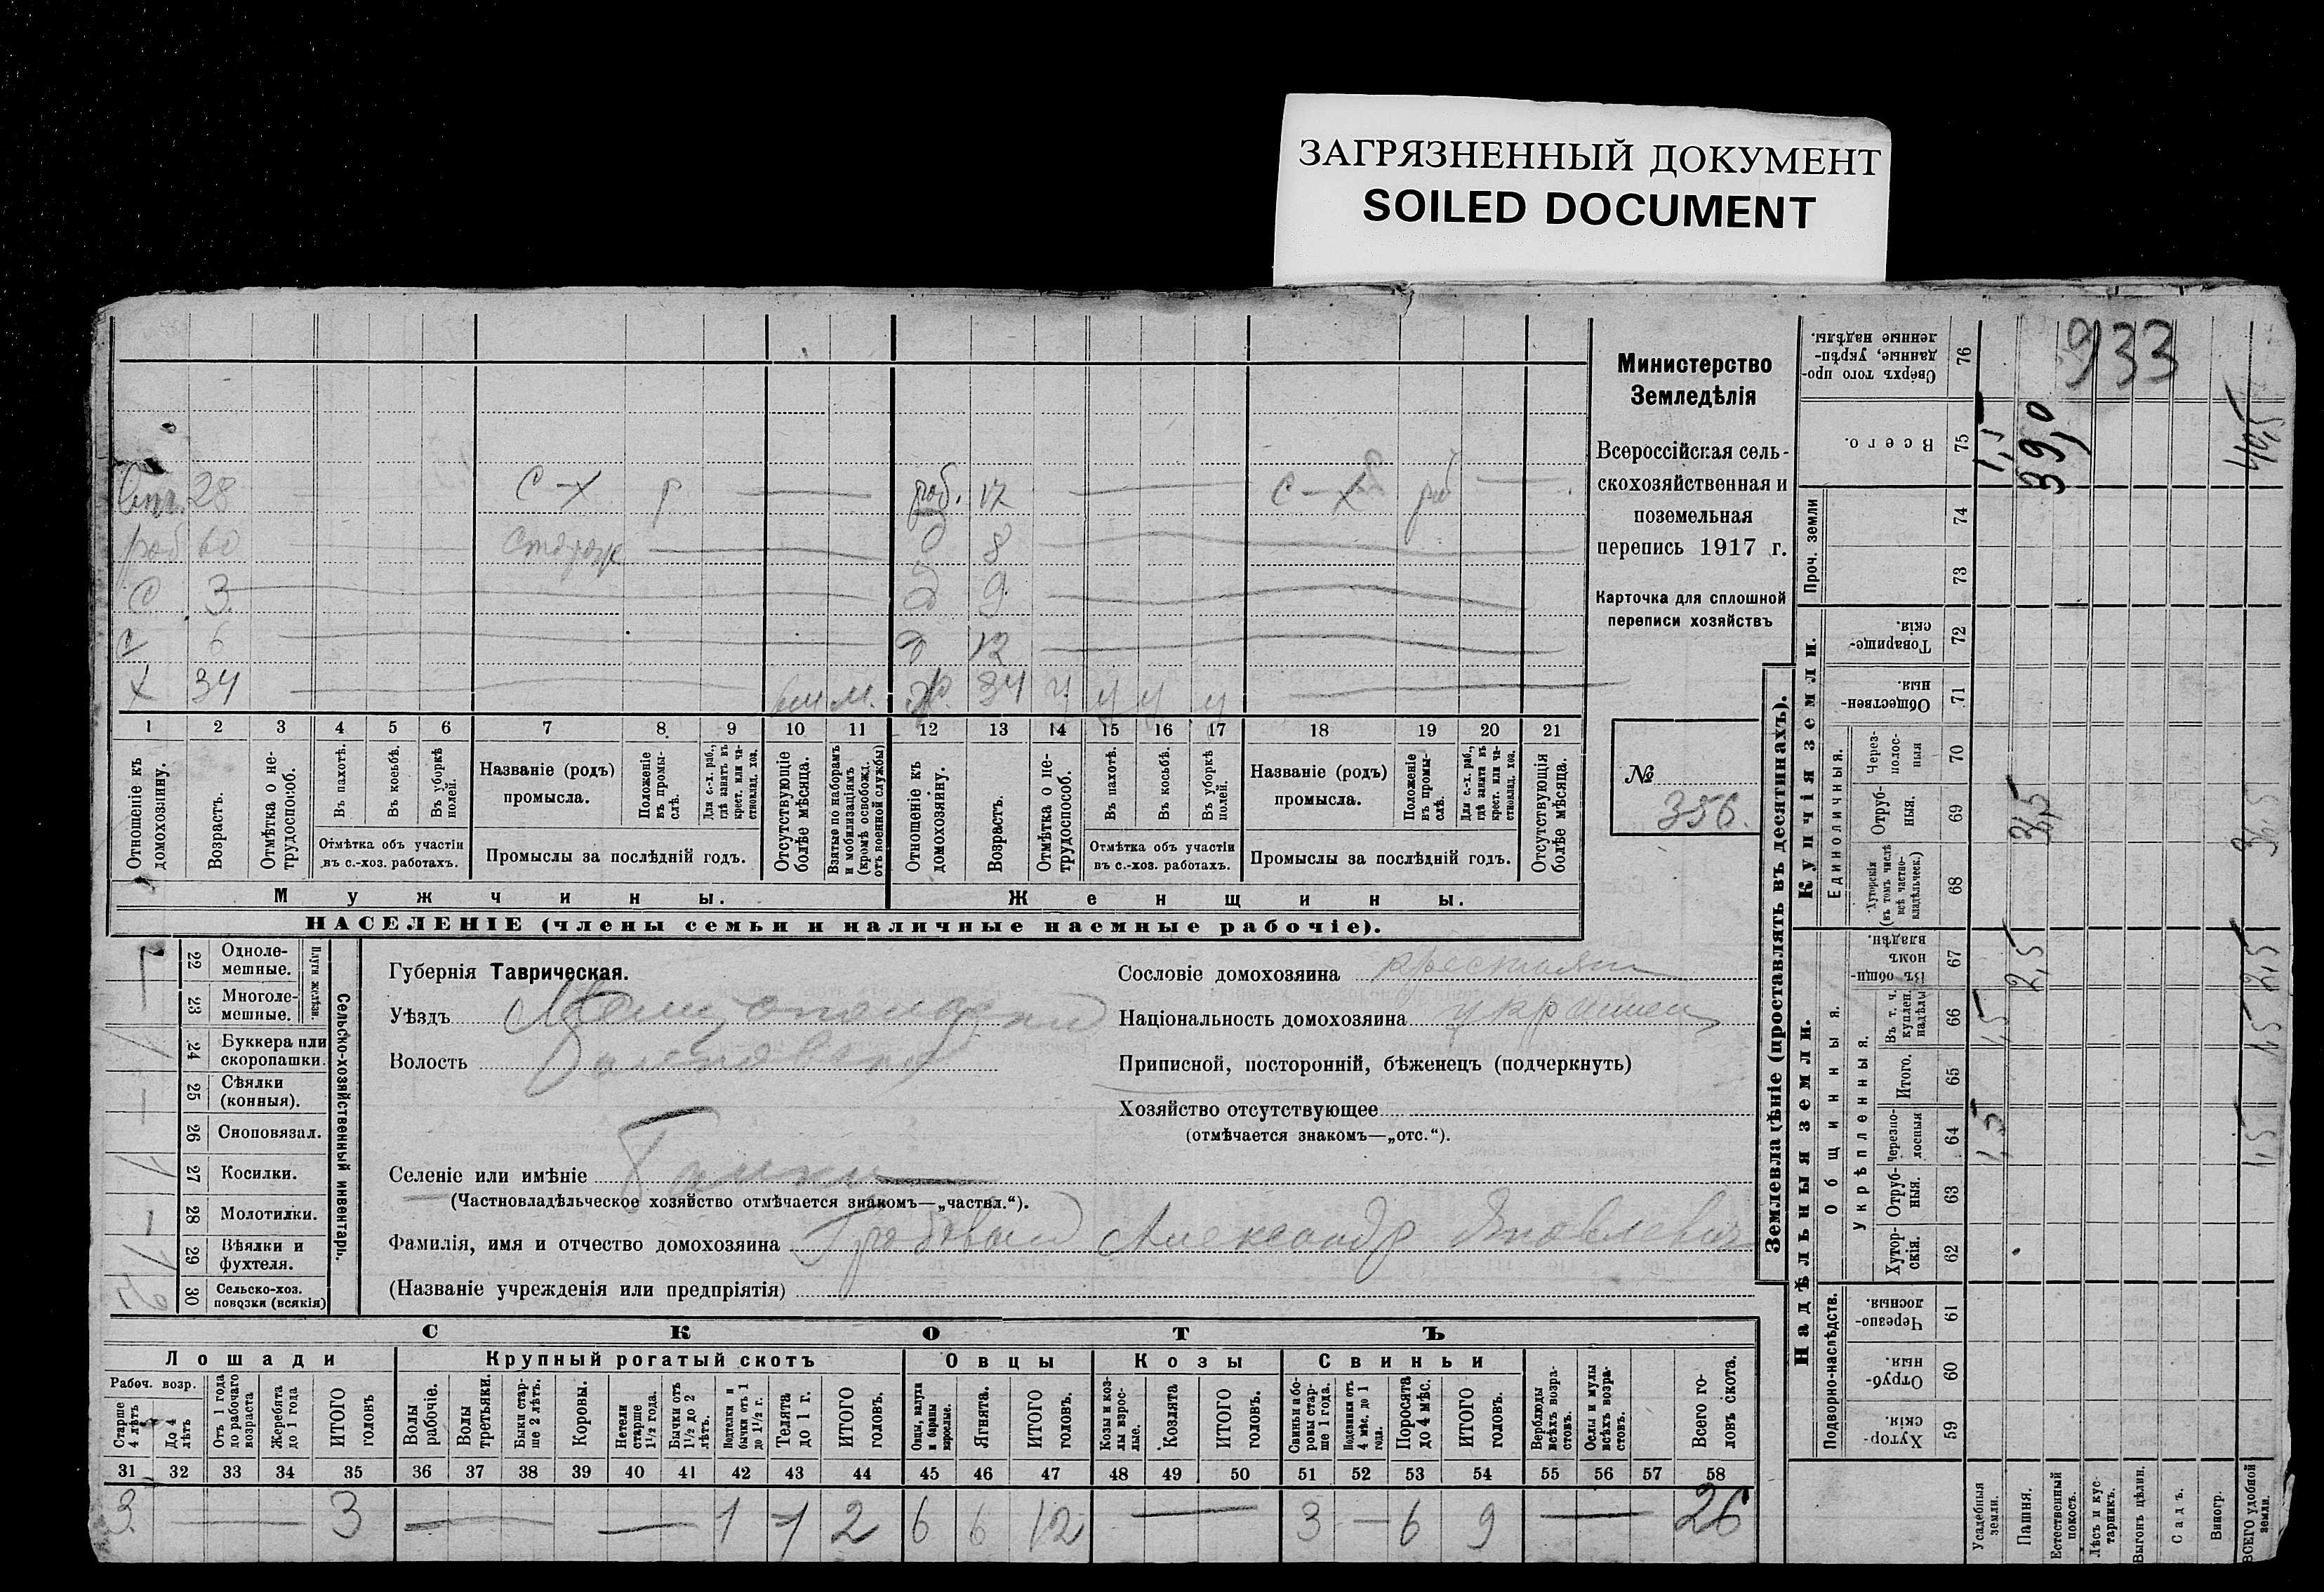 ЗАГРЯЗНЕННЫЙ ДОКУМЕНТ
SOILED DOCUMENT
933
Министерство
Земледѣлія
Всероссійская сель-
скохозяйственная и
поземельная
перепись 1917 г.
Карточка для сплошной
переписи хозяйствъ
№
356.
28 С-х р раб. 17 С-х
раб 60 сторож д 8
с 3 д 9
с 6 д 12
х 34 ж. 34 ч ч ч ч
1 2 3 4 5 6 7 8 9 10 11 12 13 14 15 16 17 18 19 20 21
Отношеніе къ домохозяину.
Возрастъ.
Отмѣтка о не-трудоспособ.
Въ пахотѣ.
Въ косьбѣ.
Въ уборкѣ полей.
Отмѣтка объ участіи въ с.-хоз. работахъ.
Названіе (родъ) промысла.
Положеніе въ промы-слѣ.
Для с.-х. раб., гдѣ занятъ въ крест. или ча-стновлад. хоз.
Промыслы за послѣдній годъ.
Отсутствующіе болѣе мѣсяца.
Взятые по наборамъ и мобилизаціямъ (кромѣ освобожд. отъ военной службы)
Отношеніе къ домохозяину.
Возрастъ.
Отмѣтка о не-трудоспособ.
Въ пахотѣ.
Въ косьбѣ.
Въ уборкѣ полей.
Отмѣтка объ участіи въ с.-хоз. работахъ.
Названіе (родъ) промысла.
Положеніе въ промы-слѣ.
Для с.-х. раб., гдѣ занята въ крест. или ча-стновлад. хоз.
Промыслы за послѣдній годъ.
Отсутствующія болѣе мѣсяца.
Мужчины. Женщины.
НАСЕЛЕНІЕ (члены семьи и наличные наемные рабочіе).
Сельско-хозяйственный инвентарь.
Плуги желѣзн.
22 Одноле-мешные.
23 Многоле-мешные.
24 Буккера или скоропашки.
25 Сѣялки (конныя).
26 Сноповязал.
27 Косилки.
28 Молотилки.
29 Вѣялки и фухтеля.
30 Сельско-хоз. повозки (всякія)
Губернія Таврическая.
Уѣздъ Мелитопольский
Волость
Селеніе или имѣніе
(Частновладѣльческое хозяйство отмѣчается знакомъ—„частвл.“).
Фамилія, имя и отчество домохозяина Гробовый Александр Яковлевич
(Названіе учрежденія или предпріятія)
Сословіе домохозяина крестьянин
Національность домохозяина украинец
Приписной, посторонній, бѣженецъ (подчеркнуть)
Хозяйство отсутствующее
(отмѣчается знакомъ—„отс.“).
СКОТЪ
Лошади Крупный рогатый скотъ Овцы Козы Свиньи
Рабоч. возр.
Старше 4 лѣтъ
До 4 лѣтъ
Отъ 1 года до рабочаго возраста
Жеребята до 1 года
ИТОГО головъ
Волы рабочіе.
Волы третьяки.
Быки стар-ше 2 лѣтъ.
Коровы.
Нетели старше 1½ года.
Бычки отъ 1½ до 2 лѣтъ.
Подтелки и бычки отъ 1 до 1½ г.
Телята до 1 г.
ИТОГО головъ.
Овцы, валухи и бараны взрослые.
Ягнята.
ИТОГО головъ.
Козы и коз-лы взрос-лые.
Козлята
ИТОГО головъ.
Свиньи и бо-ровы стар-ше 1 года.
Подсвинки отъ 4 мѣс. до 1 года.
Поросята до 4 мѣс.
ИТОГО головъ.
Верблюды всѣхъ возра-стовъ.
Ослы и мулы всѣхъ возра-стовъ.
Всего го-ловъ скота.
31 32 33 34 35 36 37 38 39 40 41 42 43 44 45 46 47 48 49 50 51 52 53 54 55 56 57 58
3 — 3 — — 1 1 2 6 6 12 — 3 — 6 9 — 26
Землевладѣніе (проставлять въ десятинахъ).
Купчія земли.
Надѣльныя земли.
Сверхъ того про-данные, укрѣп-ленные надѣлы. 76
Всего. 75 1,5 39,0 40,5
Проч. земли 74 73
Товарище-скія. 72
Обществен-ныя. 71
Единоличныя.
Черезполос-ныя 70
Отруб-ныя. 69
Хуторскія (въ томъ числѣ всѣ частно-владѣльческ.) 68
Общинныя.
Въ общин-номъ владѣн. 67 2,5 2,5
Укрѣпленныя.
Въ т. ч. куплен. надѣлы 66 1,5 1,5
Итого. 65
Черезпо-лосныя 64 1,5 1,5
Отруб-ныя. 63
Хутор-скія. 62
Подворно-наслѣдств.
Черезпо-лосныя. 61
Отруб-ныя. 60
Хутор-скія 59
Усадебныя земли.
Пашня.
Естественный покосъ.
Лѣсъ и кус-тарникъ.
Выгонъ цѣлин.
Садъ.
Виногр.
ВСЕГО удобной земли.